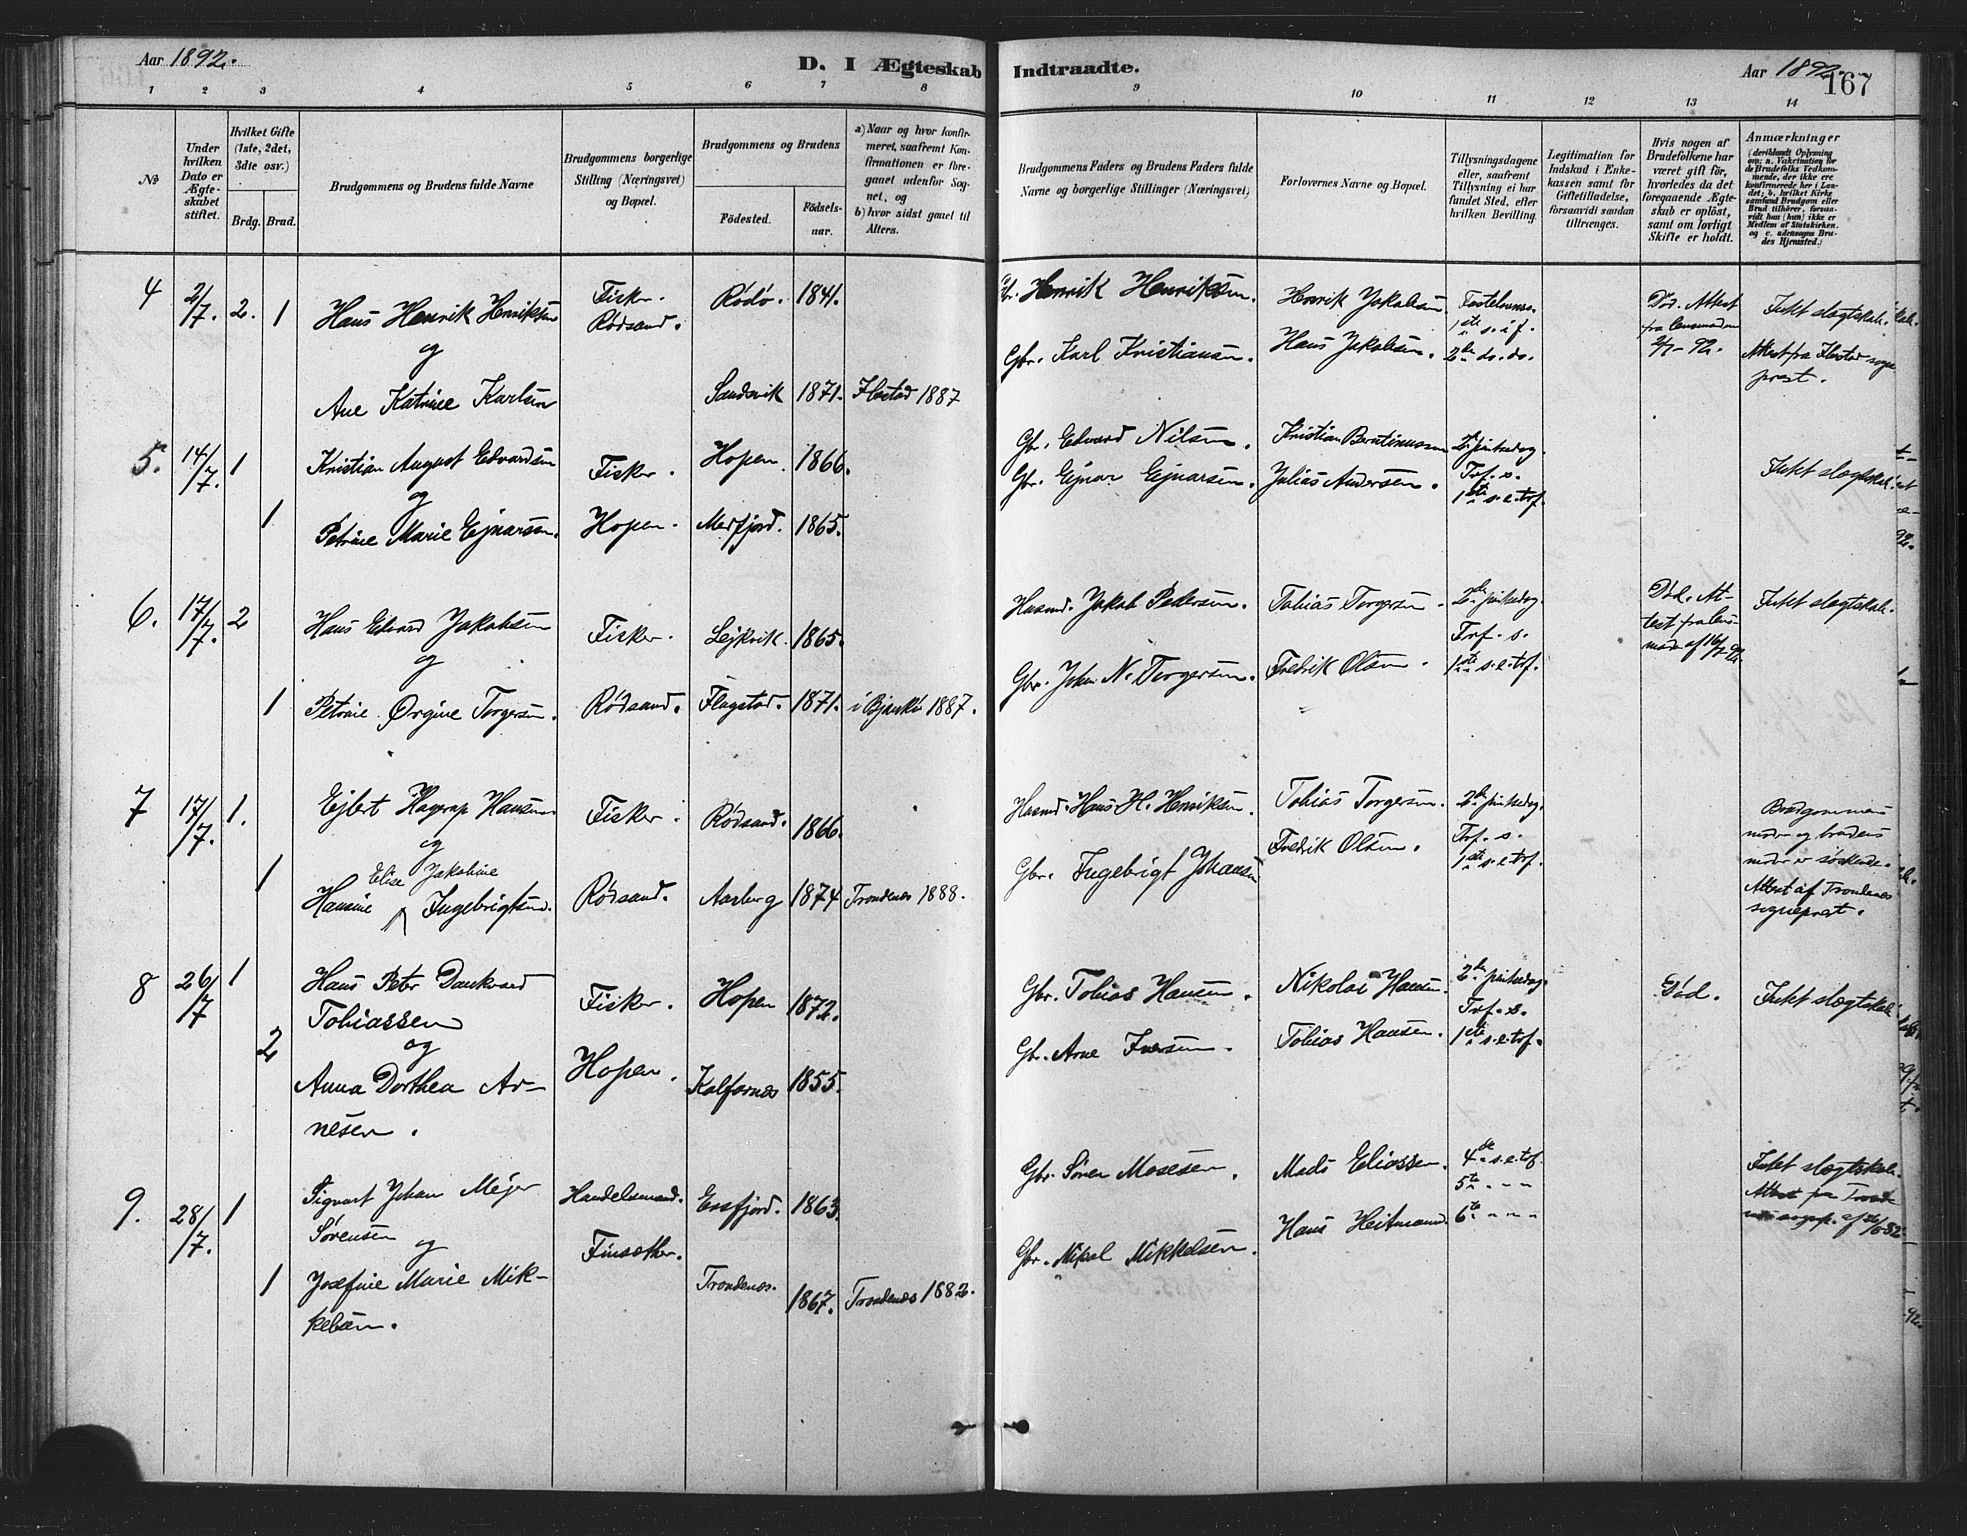 Aar 1892.
D. I Ægteskab Indtraadte.
Aar 1892.
167
1 2 3 4 5 6 7 8 9 10 11 12 13 14
№
Under hvilken Dato er Ægteskabet stiftet.
Hvilket Gifte (1ste, 2det, 3die osv.)
Brdg. Brud.
Brudgommens og Brudens fulde Navne
Brudgommens borgerlige Stilling (Næringsvei) og Bopæl.
Brudgommens og Brudens
Fødested.
Fødselsaar.
a) Naar og hvor konfirmeret, saafremt Konfirmationen er foregaaet udenfor Sognet, og
b) hvor sidst gaaet til Alters.
Brudgommens Faders og Brudens Faders fulde Navne og borgerlige Stillinger (Næringsvei)
Forlovernes Navne og Bopæl.
Tillysningsdagene eller, saafremt Tillysning ei har fundet Sted, efter hvilken Bevilling.
Legitimation for Indskud i Enkekassen samt for Giftetilladelse, forsaavidt saadan tiltrænges.
Hvis nogen af Brudefolkene har været gift før, hvorledes da det foregaaende Ægteskab er opløst, samt om lovligt Skifte er holdt.
Anmærkninger
(deriblandt Oplysning om: a. Vakcination for de Brudefolks Vedkommende, der ikke ere konfirmerede her i Landet; b. hvilket Kirkesamfund Brudgom eller Brud tilhører, forsaavidt han (hun) ikke er Medlem af Statskirken, og c. udensogns Brudes Hjemsted.)
4 2/7. 2. 1 Hans Henrik Henriksen
og
Ane Katrine Karlsen
Fisker.
Rødsand.
Rødø. 1841.
Sandvik 1871. Ibestad 1887
Gbr. Henrik Henriksen.
Gbr. Karl Kristiansen.
Henrik Jakobsen
Hans Jakobsen.
Fastelavns.
1ste s. i f.
2den do. do.
Død. Attest
fra lensmanden
2/7-92.
Intet slægtskab.
Attest fra Ibestad sogneprest.
5. 14/7. 1 Kristian August Edvardsen
og
1 Petrine Marie Ejnarsen.
Fisker.
Hopen.
Hopen 1866.
Mefjord. 1865.
Gbr. Edvard Nilsen.
Gbr. Ejnar Ejnarsen.
Kristian Berntinussen
Julius Andersen.
2den pintsedag.
Tref. s.
1ste s. e. tref.
Intet slægtskab.
6. 17/7. 2 Hans Edvard Jakobsen
og
1 Petrine Orgine Torgersen.
Fisker.
Rødsand.
Lejkvik. 1865.
Flagstad. 1871. i Bjarkø 1887.
Husmd. Jakob Pedersen.
Gbr. Johan N. Torgersen.
Tobias Torgersen.
Fredrik Olsen.
2den pintsedag.
Tref. s.
1ste s. e. tref.
Død. Attest fra lensmanden af 16/7-92.
Intet slægtskab.
7 17/7. 1. Ejlert Hagerup Hansen
og
Elise Jakobine
1 Hansine Ingebrigtsen.
Fisker.
Rødsand.
Rødsand. 1866.
Aarberg 1874 Trondenes 1888.
Husmd. Hans H. Henriksen.
Gbr. Ingebrigt Johansen
Tobias Torgersen.
Fredrik Olsen.
2den pintsedag.
Tref. s.
1ste s. e. tref.
Brudgommens
moder og brudens
moder er søskende.
Attest af Trondenes
sogneprest.
8 26/7 1 Hans Peter Dankvard
Tobiassen
og
2 Anna Dorthea Arnesen.
Fisker.
Hopen.
Hopen 1872.
Kalfarnes 1855.
Gbr. Tobias Hansen.
Gbr. Arne Iversen.
Nikolai Hansen.
Tobias Hansen.
2den pintsedag.
Tref. s.
1ste s. e. tref.
Død.
Intet slægtskab.
9. 28/7. 1 Sigvart Johan Mejer
Sørensen
og
1 Josefine Marie Mikkelsen.
Handelsmand.
Finsæther.
Ersfjord. 1863.
Trondenes. 1867. Trondenes 1882.
Gbr. Søren Mosesen.
Gbr. Mikal Mikkelsen.
Mads Eliassen.
Hans Heitmann.
4de s. e. tref.
5te " " "
6te " " "
Intet slægtskab.
Attest fra